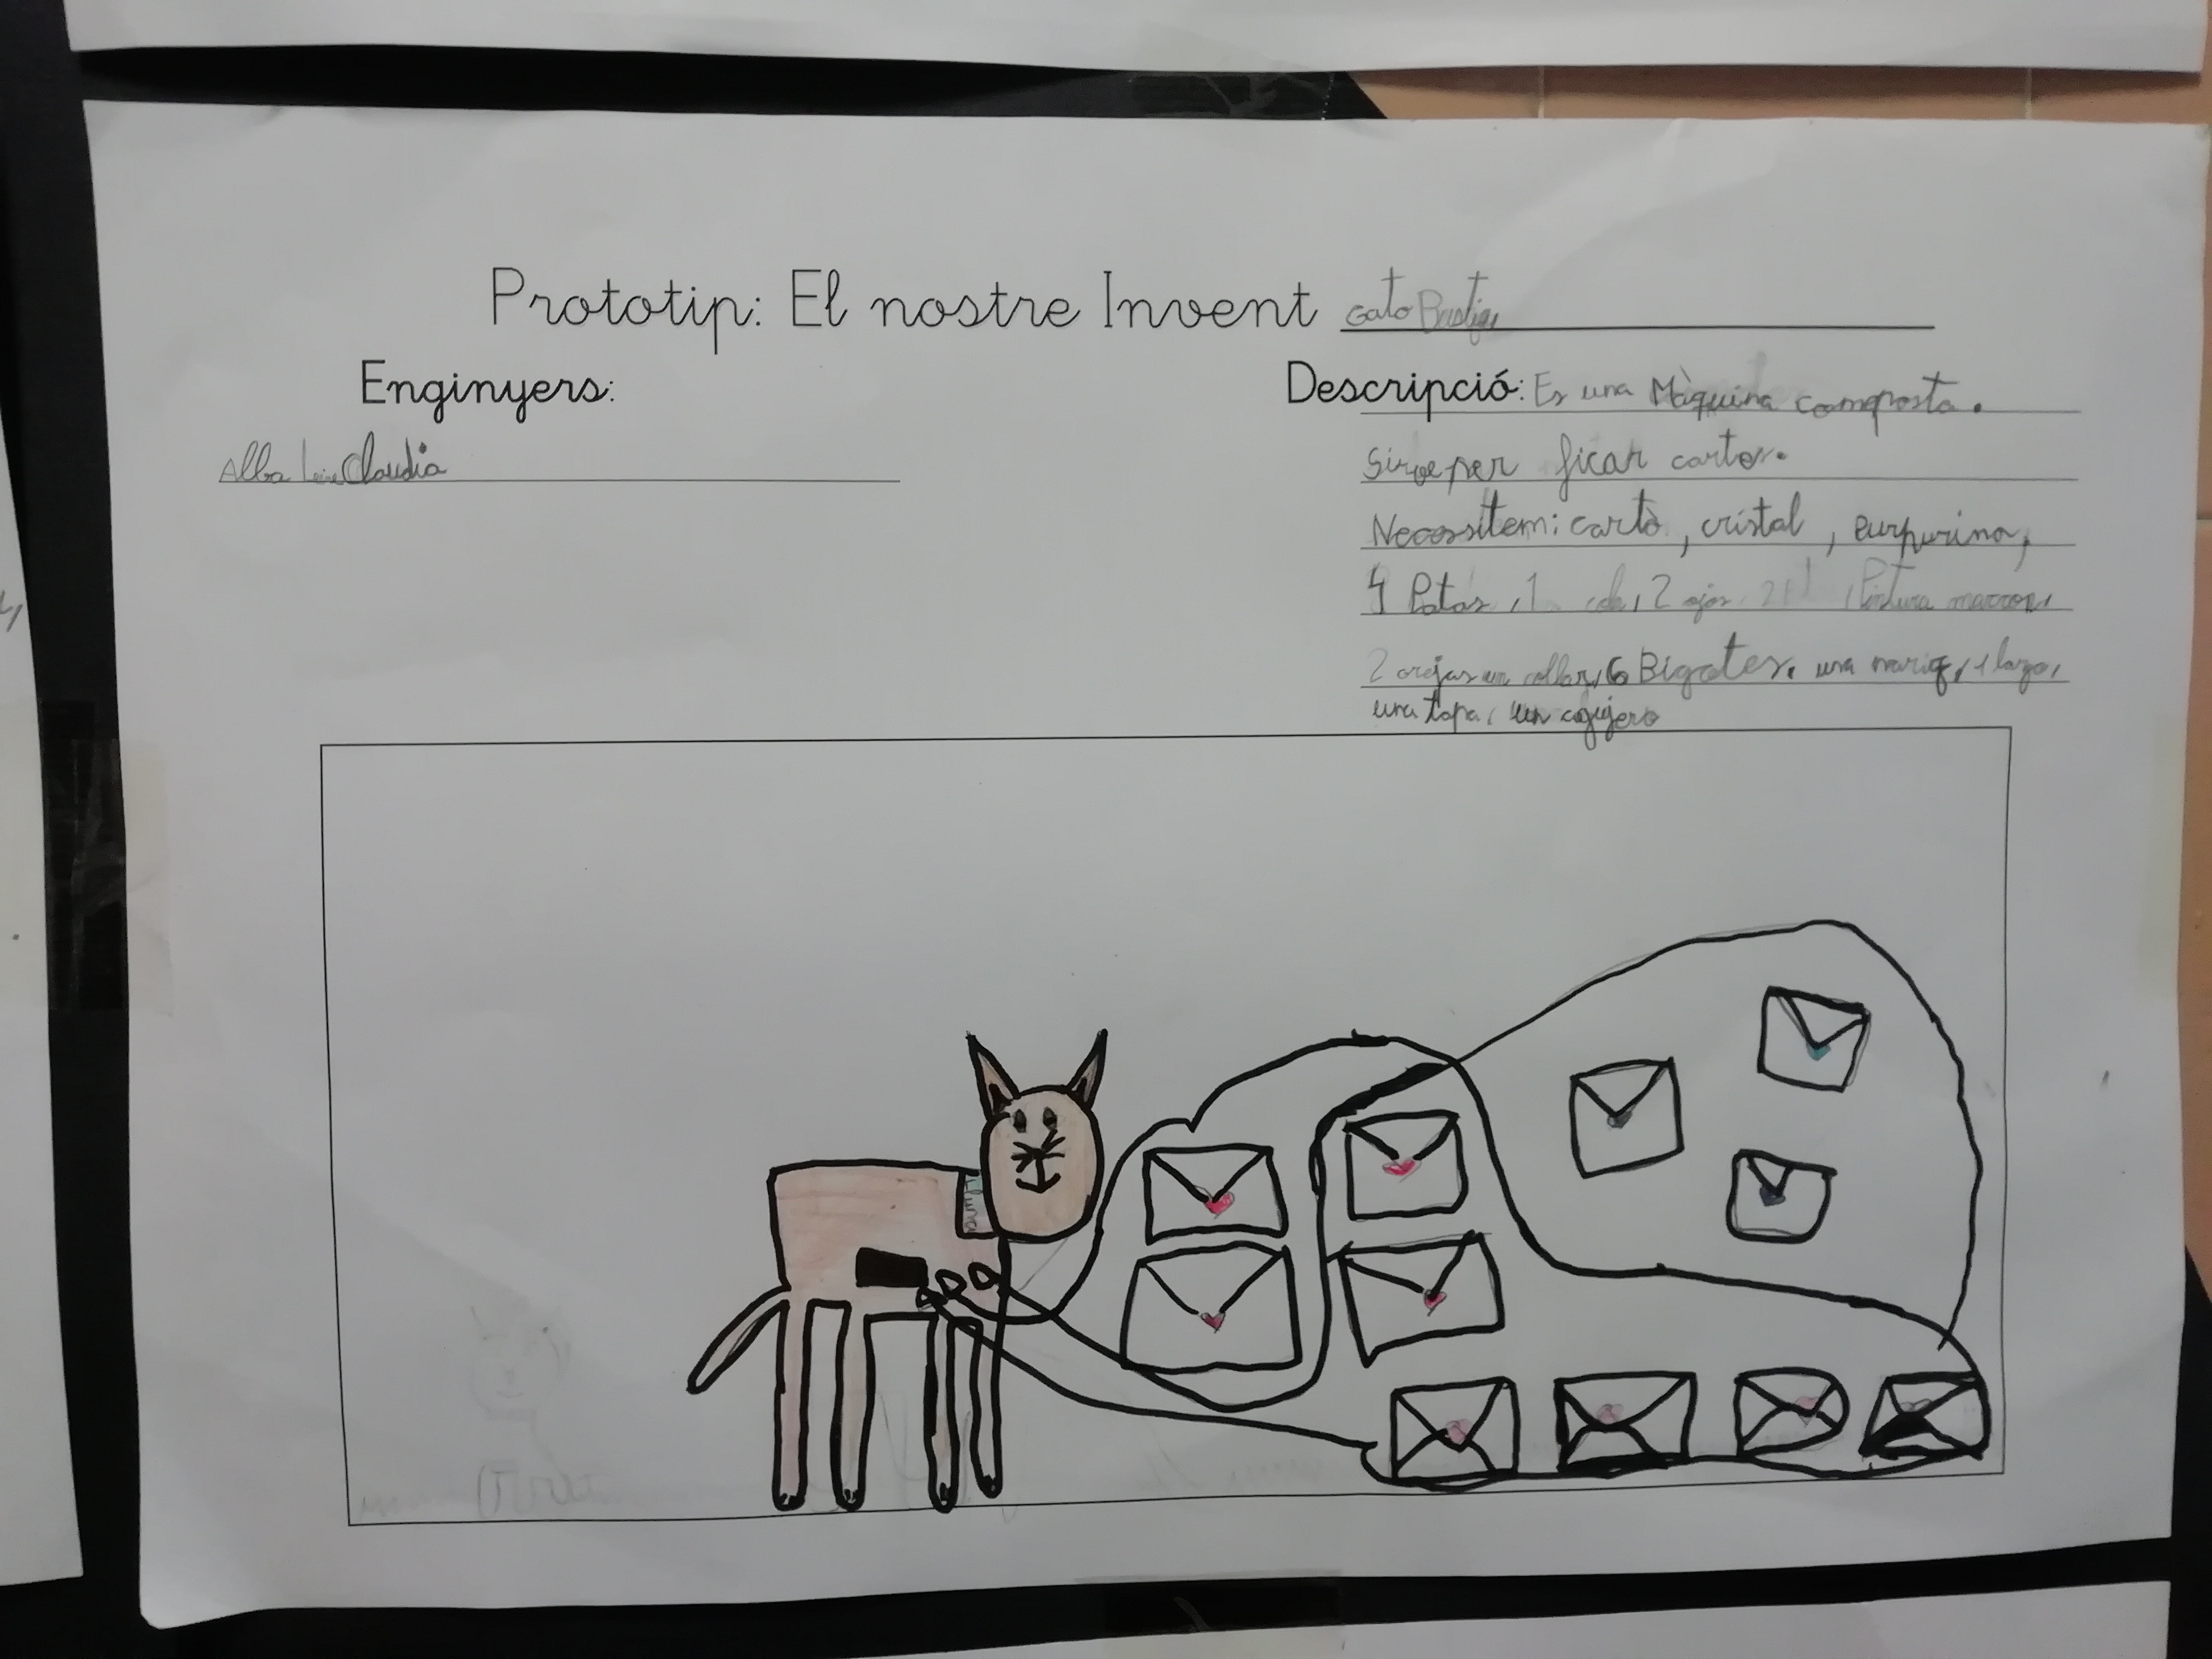 Prototip: El nostre Invent Gato
Enginyers:
Alba Claudia
Descripció: Es una Màquina composta.
Sirve per ficar cartes.
Necessitem: cartò, cristal, purpurina,
4 Patas, 1 cola, 2 ojos, Pintura marron,
2 orejas un collar, 6 Bigotes, una nariz, 1 lazo,
una tapa, un agujero
Luna